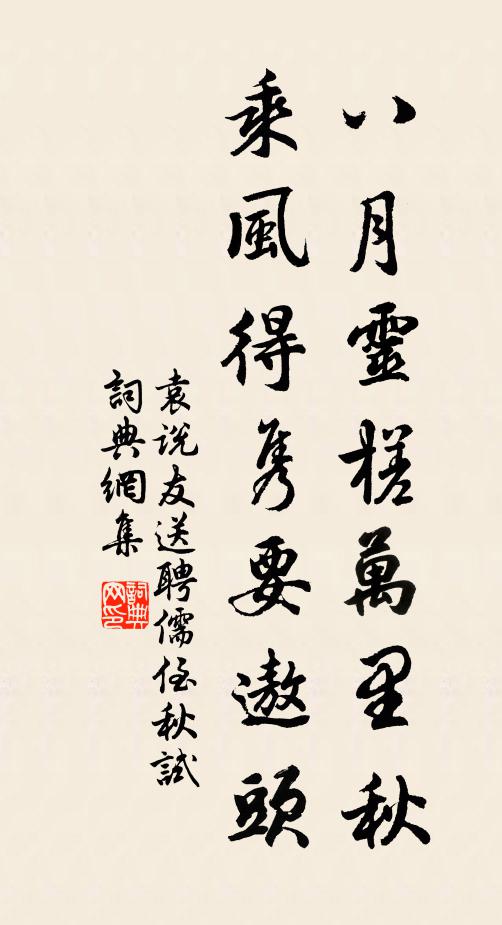 八月靈槎萬里秋
乘風得隽要遨頭
袁説友送聘儒侄秋試
詞典網集
詞典网印